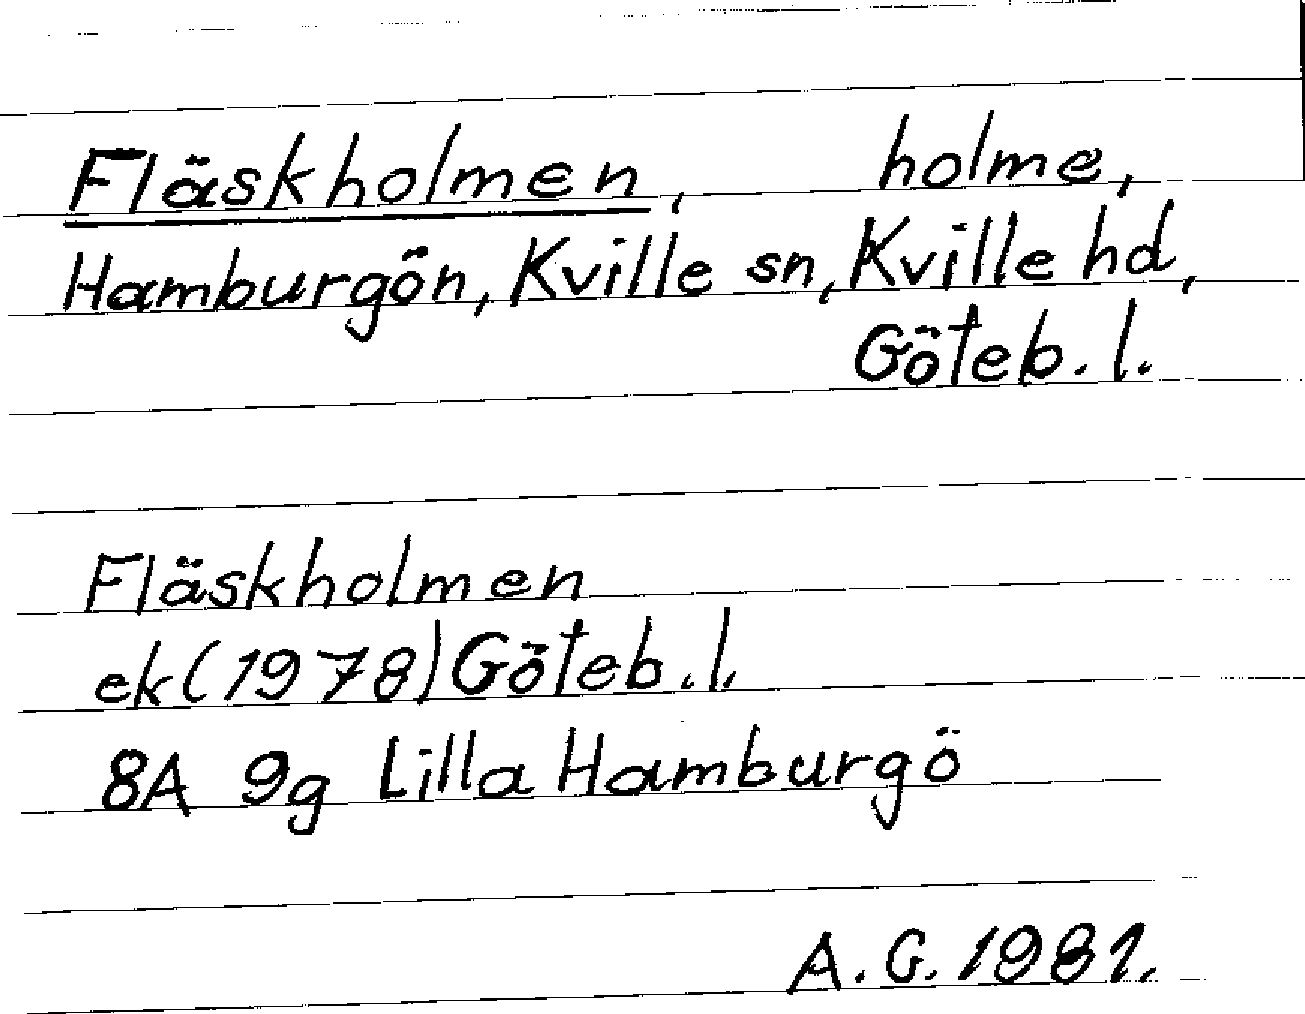 Fläskholmen, holme,
Hamburgön, Kville sn, Kville hd,
Göteb. l.
Fläskholmen
ek (1978) Göteb. l.
8A 9g Lilla Hamburgö
A. G. 1981.